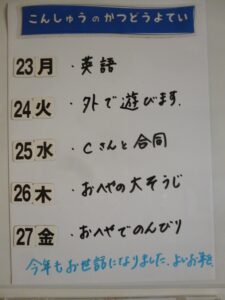 こんしゅうのかつどうよてい
23月 ・英語
24火 ・外で遊びます.
25水 ・Cさんと合同
26木 ・おへやの大そうじ
27金 ・おへやでのんびり
今年もお世話になりました.よいお年を